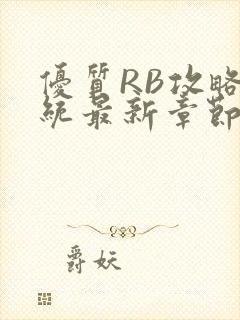 優質RB攻略
統最新章節
爵妖